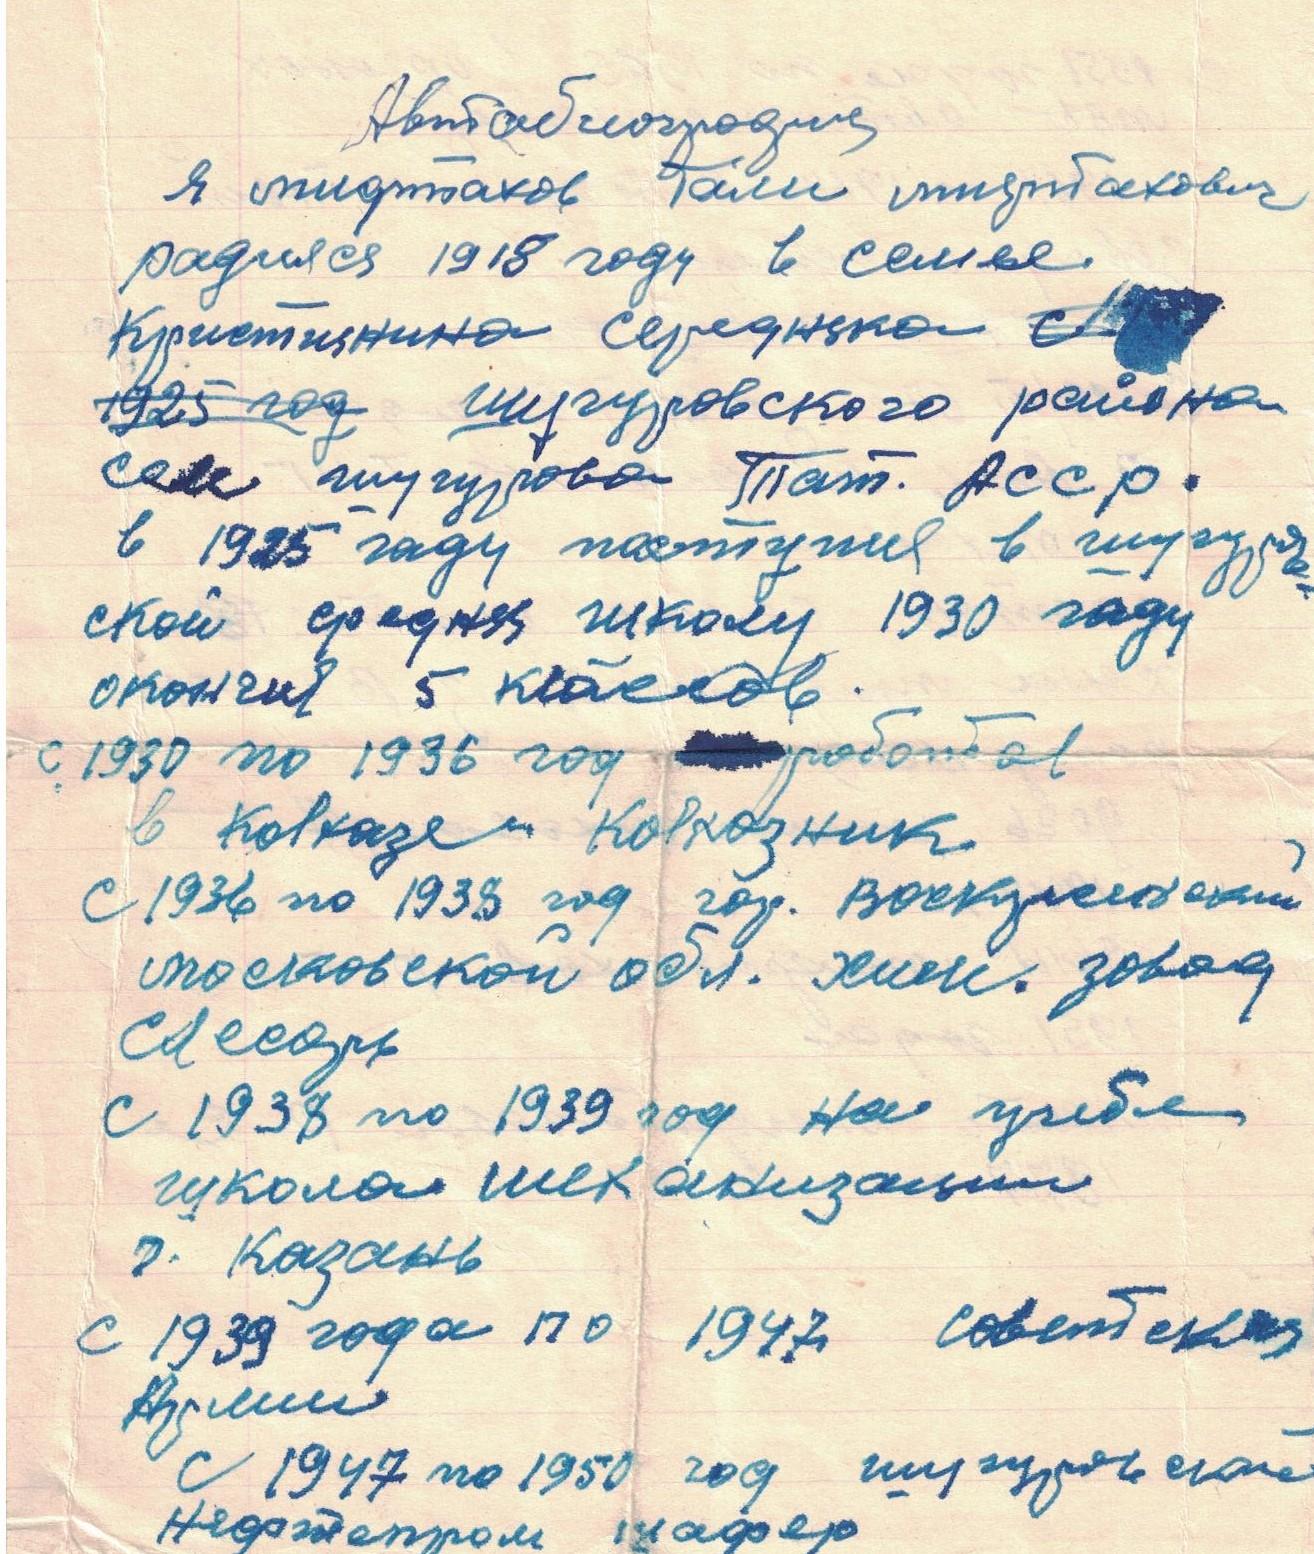 Автабиография
Я мифтахов Гали мифтахович
радился 1918 году в семье
Кристиянина середняка с
1925 год шугуровского района
сели шугурова Тат. АССР.
в 1925 гаду поступил в шугуров-
ской средняя школу 1930 гаду
окончил 5 классов.
с 1930 по 1936 год работал
в Колхазе Колхозник
С 1936 по 1938 год гор.
московской обл. хим. зовод
Слесарь
С 1938 по 1939 год на учебе
школа механизации
г. Казань
С 1939 года по 1947 Советская
Армии
С 1947 по 1950 год шугуровской
Нефтепром шафер